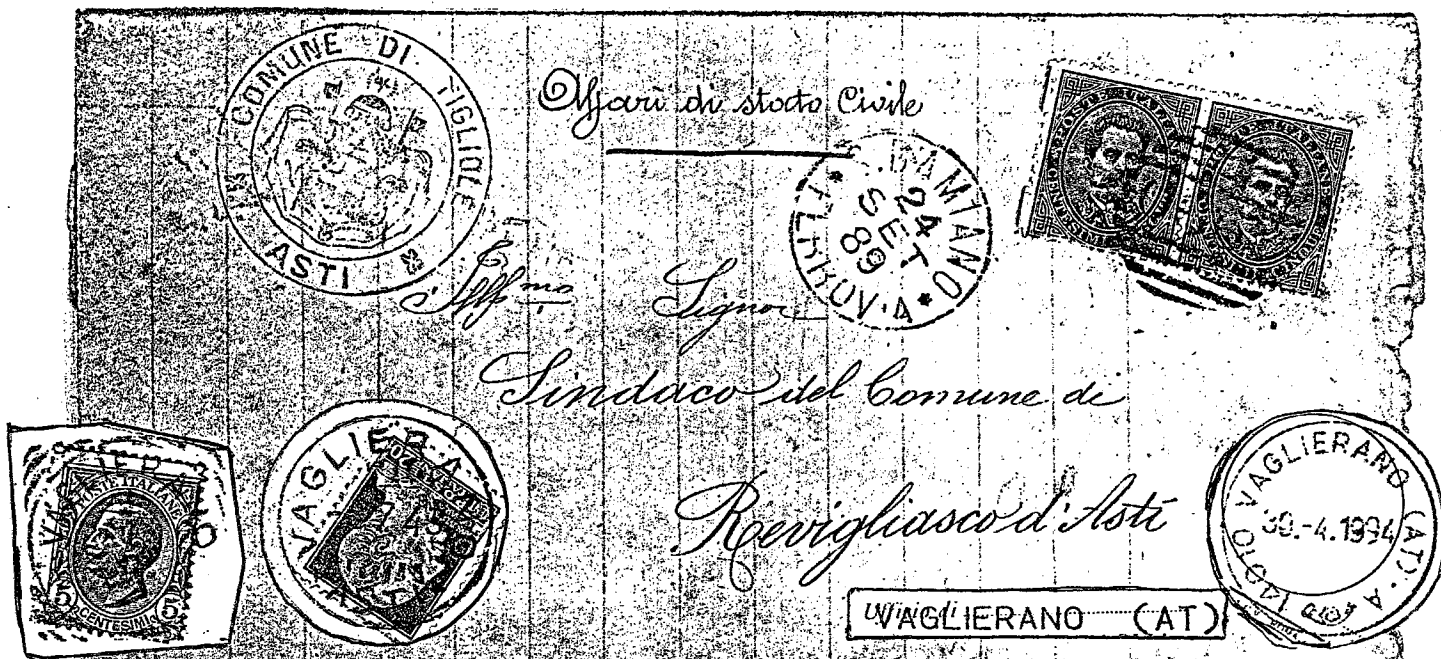 COMUNE DI TIGLIOLE
ASTI
Affari di stato Civile
S. DAMIANO
24
SET
89
* FERROV.A *
Ill.mo Signor
Sindaco del Comune de
Revigliasco d'Asti
VAGLIERANO
POSTE ITALIANE
5 5
CENTESIMI
VAGLIERANO
14010 VAGLIERANO (AT) · A
30.-4.1994
Uffici di
VAGLIERANO (AT)